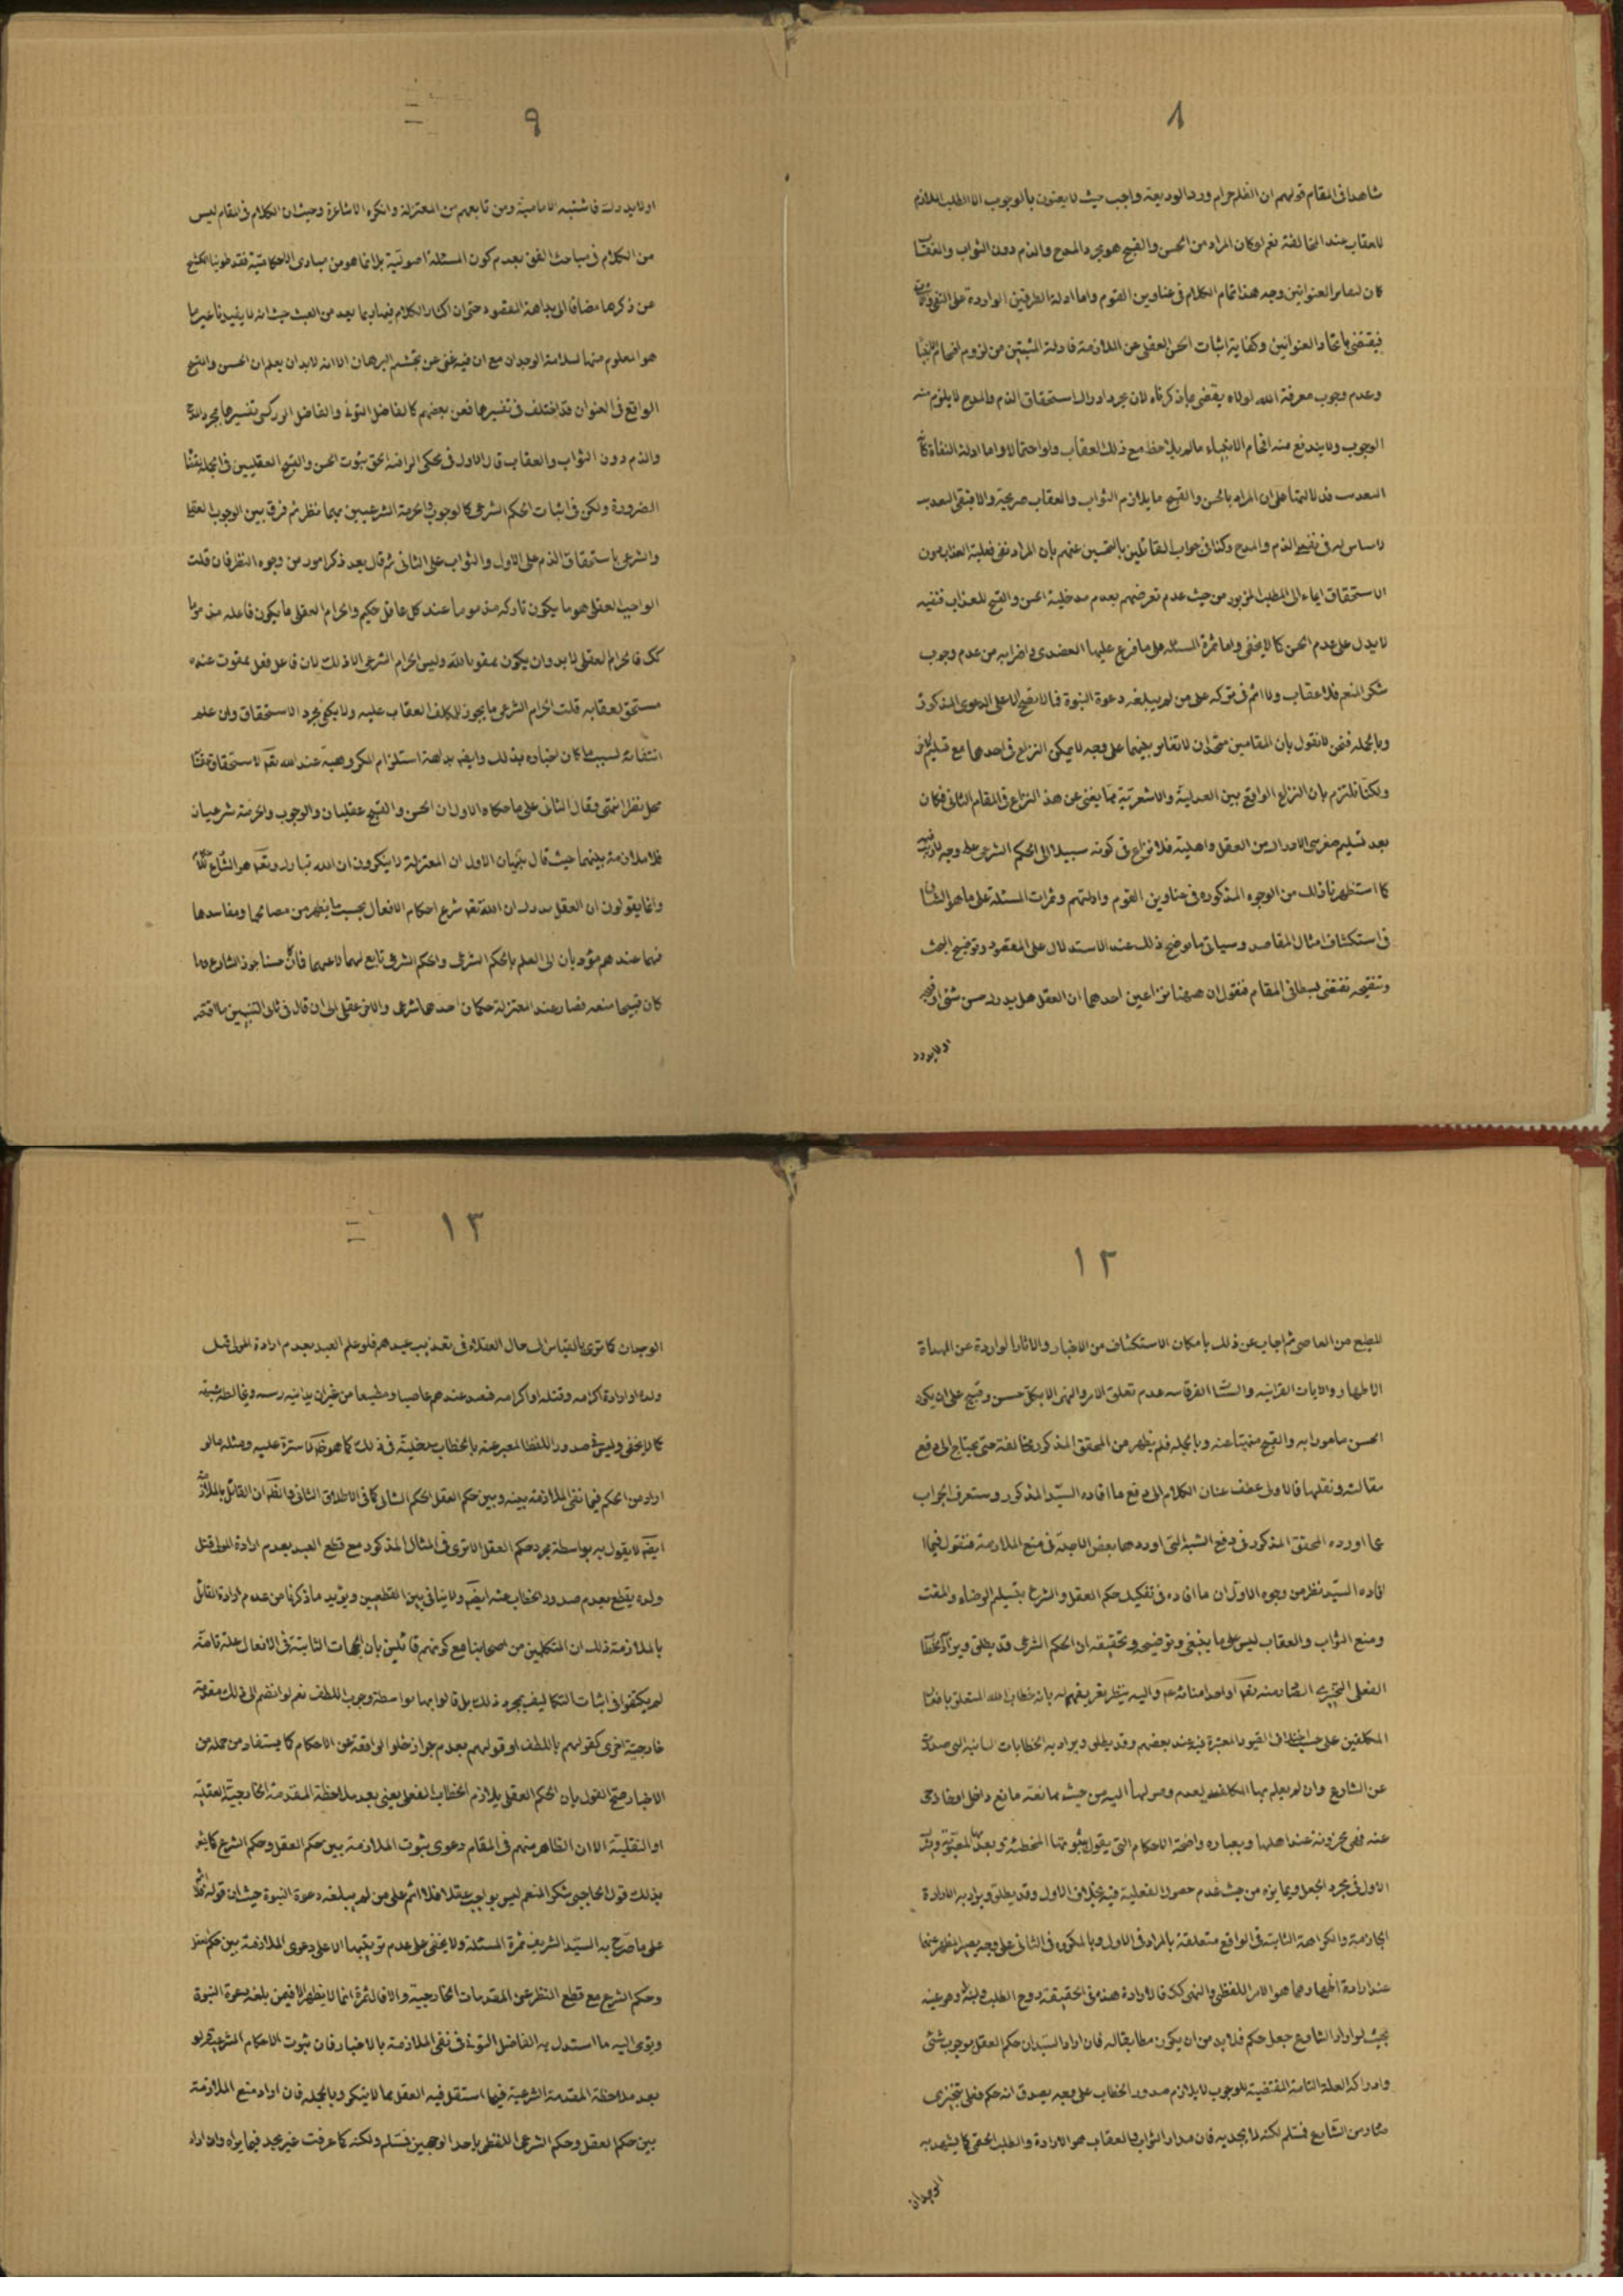 ٨
شاهدا فى المقام قولهم ان الظلم حرام ورد الوديعة واجب حيث لا يعنون بالوجوب الا الطلب الملازم
للعقاب عند المخالفة نعم لو كان المراد من الحسن والقبح هو مجرد المدح والذم دون الثواب والعقاب
كان لتغاير العنوانين وجه هذا تمام الكلام فى عناوين القوم واما ادلة الطرفين الواردة على النفى والاثبات
فيقتضى باتحاد العنوانين وكفاية اثبات الحسن العقلى عن الملازمة فادلة المثبتين من لزوم افحام الانبياء
وعدم وجوب معرفة الله لولاه يقضى بما ذكرناه لان مجرد ادراك استحقاق الذم والمدح لا يلزم منه
الوجوب ولا يندفع منه افحام الانبياء ما لم يلاحظ مع ذلك العقاب ولو احتمالا واما ادلة النفاة كآية
التعذيب فدلالتها على ان المراد بالحسن والقبح ما يلازم الثواب والعقاب صريحة والا فنفى التعذيب
لا مساس له فى نفى الذم والمدح وكذا فى جواب القائلين بالتحسين عنهم بان المراد نفى فعلية العذاب دون
الاستحقاق ايماء الى المطلب المزبور من حيث عدم تعرضهم بعدم مدخلية الحسن والقبح للعذاب فنفيه
لا يدل على عدم الحسن كما لا يخفى واما ثمرة المسئلة على ما فرع عليها العضدى واضرابه من عدم وجوب
شكر المنعم فلا عقاب ولا اثم فى تركه على من لم يبلغه دعوة النبوة فالا يتضح الا على الدعوى المذكورة
وبالجملة فنحن لا نقول بان المقامين متحدان لا تغاير بينهما على وجه لا يمكن النزاع فى احدهما مع تسليم الاخر
ولكنا نلتزم بان النزاع الواقع بين العدلية والاشعرية مما يغنى عن هذا النزاع فى المقام الثانى فكان
بعد تسليم صغرى الادراك من العقل واهليته فلا نزاع فى كونه سبيلا الى الحكم الشرعى على وجه
كما استظهرنا ذلك من الوجوه المذكورة فى عناوين القوم وادلتهم وثمرات المسئلة على ما هو الشأن
فى استكشاف امثال المقاصد وسياتى ما يوضح ذلك عند الاستدلال على المقصود وتوضيح البحث
وتنقيحه تقتضى بسطا فى المقام فنقول ان ههنا نزاعين احدهما ان العقل هل يدرك حسن شئ او قبحه
او لا يدرك
٩
او لا يدرك فاثبته الامامية ومن تابعهم من المعتزلة وانكره الاشاعرة وحيث ان الكلام فى المقام ليس
من الكلام فى مباحث الفن بعدم كون المسئلة اصولية بل انما هو من مبادى الاحكامية فقد طوينا الكشح
عن ذكرها مضافا الى بداهة المقصود حتى ان اكثار الكلام فيها ربما يعد من العبث حيث انه لا يفيدنا غير ما
هو المعلوم منها لسلامة الوجدان مع ان فيه غنى عن تجشم البرهان الا انه لا بد ان يعلم ان الحسن والقبح
الواقع فى العنوان قد اختلف فى تفسيرها فعن بعضهم كالفاضل التونى والفاضل الزركشى تفسيرها بمجرد المدح
والذم دون الثواب والعقاب قال الاول فى محكى الوافية الحق ثبوت الحسن والقبح العقليين فى الجملة
الضرورة ولكن فى اثبات الحكم الشرعى كالوجوب والحرمة الشرعيين بهما نظر ثم فرق بين الوجوب العقلى
والشرعى باستحقاق الذم على الاول والثواب على الثانى ثم قال بعد ذكر امور من وجوه النظر فان قلت
الواجب العقلى هو ما يكون تاركه مذموما عند كل عاقل حكيم والحرام العقلى ما يكون فاعله مذموما
كك فالحرام العقلى لا بد وان يكون ممقوتا لله وليس الحرام الشرعى الا ذلك لان فاعل فعل ممقوت عنده
مستحق لعقابه قلت الحرام الشرعى ما يجوز للمكلف العقاب عليه ولا يكفى مجرد الاستحقاق وان علم
انتفائه لسبب ما كان اخباره بذلك وايضا بداهة استلزام المكروهية عند الله تعم لاستحقاق
محل نظر انتهى وقال الثانى على ما حكاه الاول ان الحسن والقبح عقليان والوجوب والحرمة شرعيان
فلا ملازمة بينهما حيث قال تنبيهان الاول ان المعتزلة لا ينكرون ان الله تبارك وتعم هو الشارع
وانما يقولون ان العقل يدرك ان الله تعم شرع احكام الافعال بحسب ما يظهر من مصالحها ومفاسدها
فهما عندهم مؤديان الى العلم بالحكم الشرعى والحكم الشرعى تابع لهما لا عينهما فما كان حسنا جوزه الشارع وما
كان قبيحا منعه فصار عند المعتزلة حكمان احدهما شرعى والاخر عقلى الى ان قال فى ثانى التنبيهين ما اقتصر
١٢
للمطيع من العاصى ثم اجاب عن ذلك بامكان الاستكشاف من الاخبار والاثار الواردة عن الهداة
الاطهار والايات القرانية عدم تعلق الامر والنهى الا بكل حسن وقبيح على ان يكون
الحسن مامورا به والقبح منهيا عنه وبالجملة فلم يظهر من المحقق المذكور مخالفة حتى يحتاج الى دفع
مقالته ونقلها فالاولى عطف عنان الكلام الى دفع ما افاده السيد المذكور وستعرف الجواب
عما اورده المحقق المذكور فى دفع الشبهة التى اوردها بعض الاجلة فى منع الملازمة فنقول فيما
افاده السيد نظر من وجوه الاول ان ما افاده فى تفكيك حكم العقل والشرع بتسليم الرضاء والمقت
ومنع الثواب والعقاب ليس على ما ينبغى وتوضيحه وتحقيقه ان الحكم الشرعى قد يطلق ويراد الخطاب
الفعلى التنجيزى الصادر منه تعم او احد امنائه عم واليه ينظر تعريفهم له بانه خطاب الله المتعلق بافعال
المكلفين على حسب اختلاف القيود المعتبرة فيه عند بعضهم وقد يطلق ويراد به الخطابات الشانية التى صدرت
عن الشارع وان لم يعلم بها المكلف لعدم وصولها اليه من حيث ممانعة مانع داخلى او خارجى
عنه فهى مخزونة عند اهلها وبعبارة واضحة الاحكام التى يقول بثبوتها المخطئة
الاول فى مجرد الجعل ويمايزه من حيث عدم حصول الفعلية فيه بخلاف الاول وقد يطلق ويراد به الارادة
الجازمة والكراهة الثابتة فى الواقع متعلقة بالمراد فى الاول وبالمكروه فى الثانى على وجه يعبر المظهر عنها
عند ارادة اظهارهما هو الامر اللفظى والنهى كك فالارادة هذه فى الحقيقة روح الطلب ولبه وهو عينه
بحيث لو اراد الشارع جعل حكم فلا بد من ان يكون مطابقا له فان اراد السيد ان حكم العقل بوجوب شئ
وادراكه العلة التامة المقتضية للوجوب لا يلازم صدور الخطاب على وجه يصدق انه حكم فعلى تنجيزى
صادر من الشارع فمسلم لكنه لا يجديه فان مدار الثواب والعقاب هو الارادة والطلب الحقى كما يشهد به
الوجدان
١٣
الوجدان كما ترى بالقياس الى حال العقلاء فى تعذيب عبيدهم فلو علم العبد بعدم ارادة المولى قتل
ولده او ارادة اكرامه وقتله او اكرامه فيعد عندهم عاصيا ومطيعا من غير ان
كما لا يخفى وليس فى صدور اللفظ المعبر عنه بالخطاب مدخلية فى ذلك كما هو ظاهر لا سترة عليه ومثله ما لو
اراد من الحكم فيما نفى الملازمة بينه وبين حكم العقل الحكم الشانى كما فى الاطلاق الثانى والظاهر ان القائل بالملازمة
ايضا لا يقول به بواسطة مجرد حكم العقل الا ترى فى المثال المذكور مع قطع العبد بعدم ارادة المولى قتل
ولده يقطع بعدم صدور الخطاب منه ايضا ولا ينافى بين القطعيين ويؤيد ما ذكرنا من عدم ارادة القائل
بالملازمة ذلك ان المتكلمين من اصحابنا مع كونهم قائلين بان الجهات الثابتة فى الافعال علة تامة
لم يكتفوا فى اثبات التكاليف بمجرد ذلك بل قالوا بها بواسطة وجوب اللطف نعم لو انضم الى ذلك مقدمة
خارجية اخرى كقولهم باللطف او قولهم بعدم جواز خلو الواقعة عن الاحكام كما يستفاد من جملة من
الاخبار صح القول بان الحكم العقلى يلازم الخطاب الفعلى يعنى بعد ملاحظة المقدمة الخارجية العقلية
او النقلية الا ان الظاهر منهم فى المقام دعوى ثبوت الملازمة بين حكم العقل وحكم الشرع كما يشعر
بذلك قول الحاجبى شكر المنعم ليس بواجب عقلا فلا اثم على من لم يبلغه دعوة النبوة حيث ان قوله فلا اثم
على ما صرح به السيد الشريف ثمرة المسئلة ولا يخفى على عدم ترتبها الا على دعوى الملازمة بين حكم العقل
وحكم الشرع مع قطع النظر عن المقدمات الخارجية والا فالثمرة انما لا يظهر الا فيمن بلغه دعوة النبوة
ويومى اليه ما استدل به الفاضل التونى فى نفى الملازمة بالاخبار فان ثبوت الاحكام الشرعية ولو
بعد ملاحظة المقدمة الشرعية فيما استقل فيه العقل مما لا ينكر وبالجملة فان اراد منع الملازمة
بين حكم العقل وحكم الشرعى اللفظى باحد الوجهين فمسلم ولكنه كما عرفت غير مجد فيما يراه وان اراد